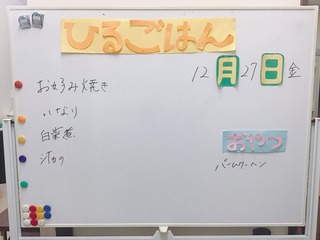 ひるごはん
12月27日金
お好み焼き
いなり
白菜煮
汁物
おやつ
バームクーヘン